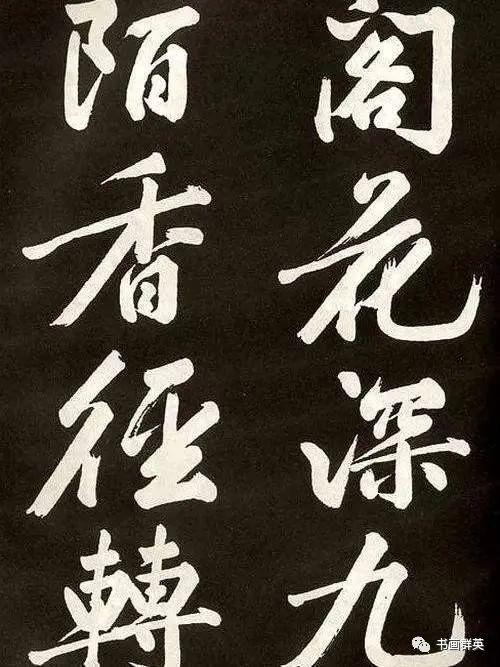 阁花深九
陌香径轉
书画群英